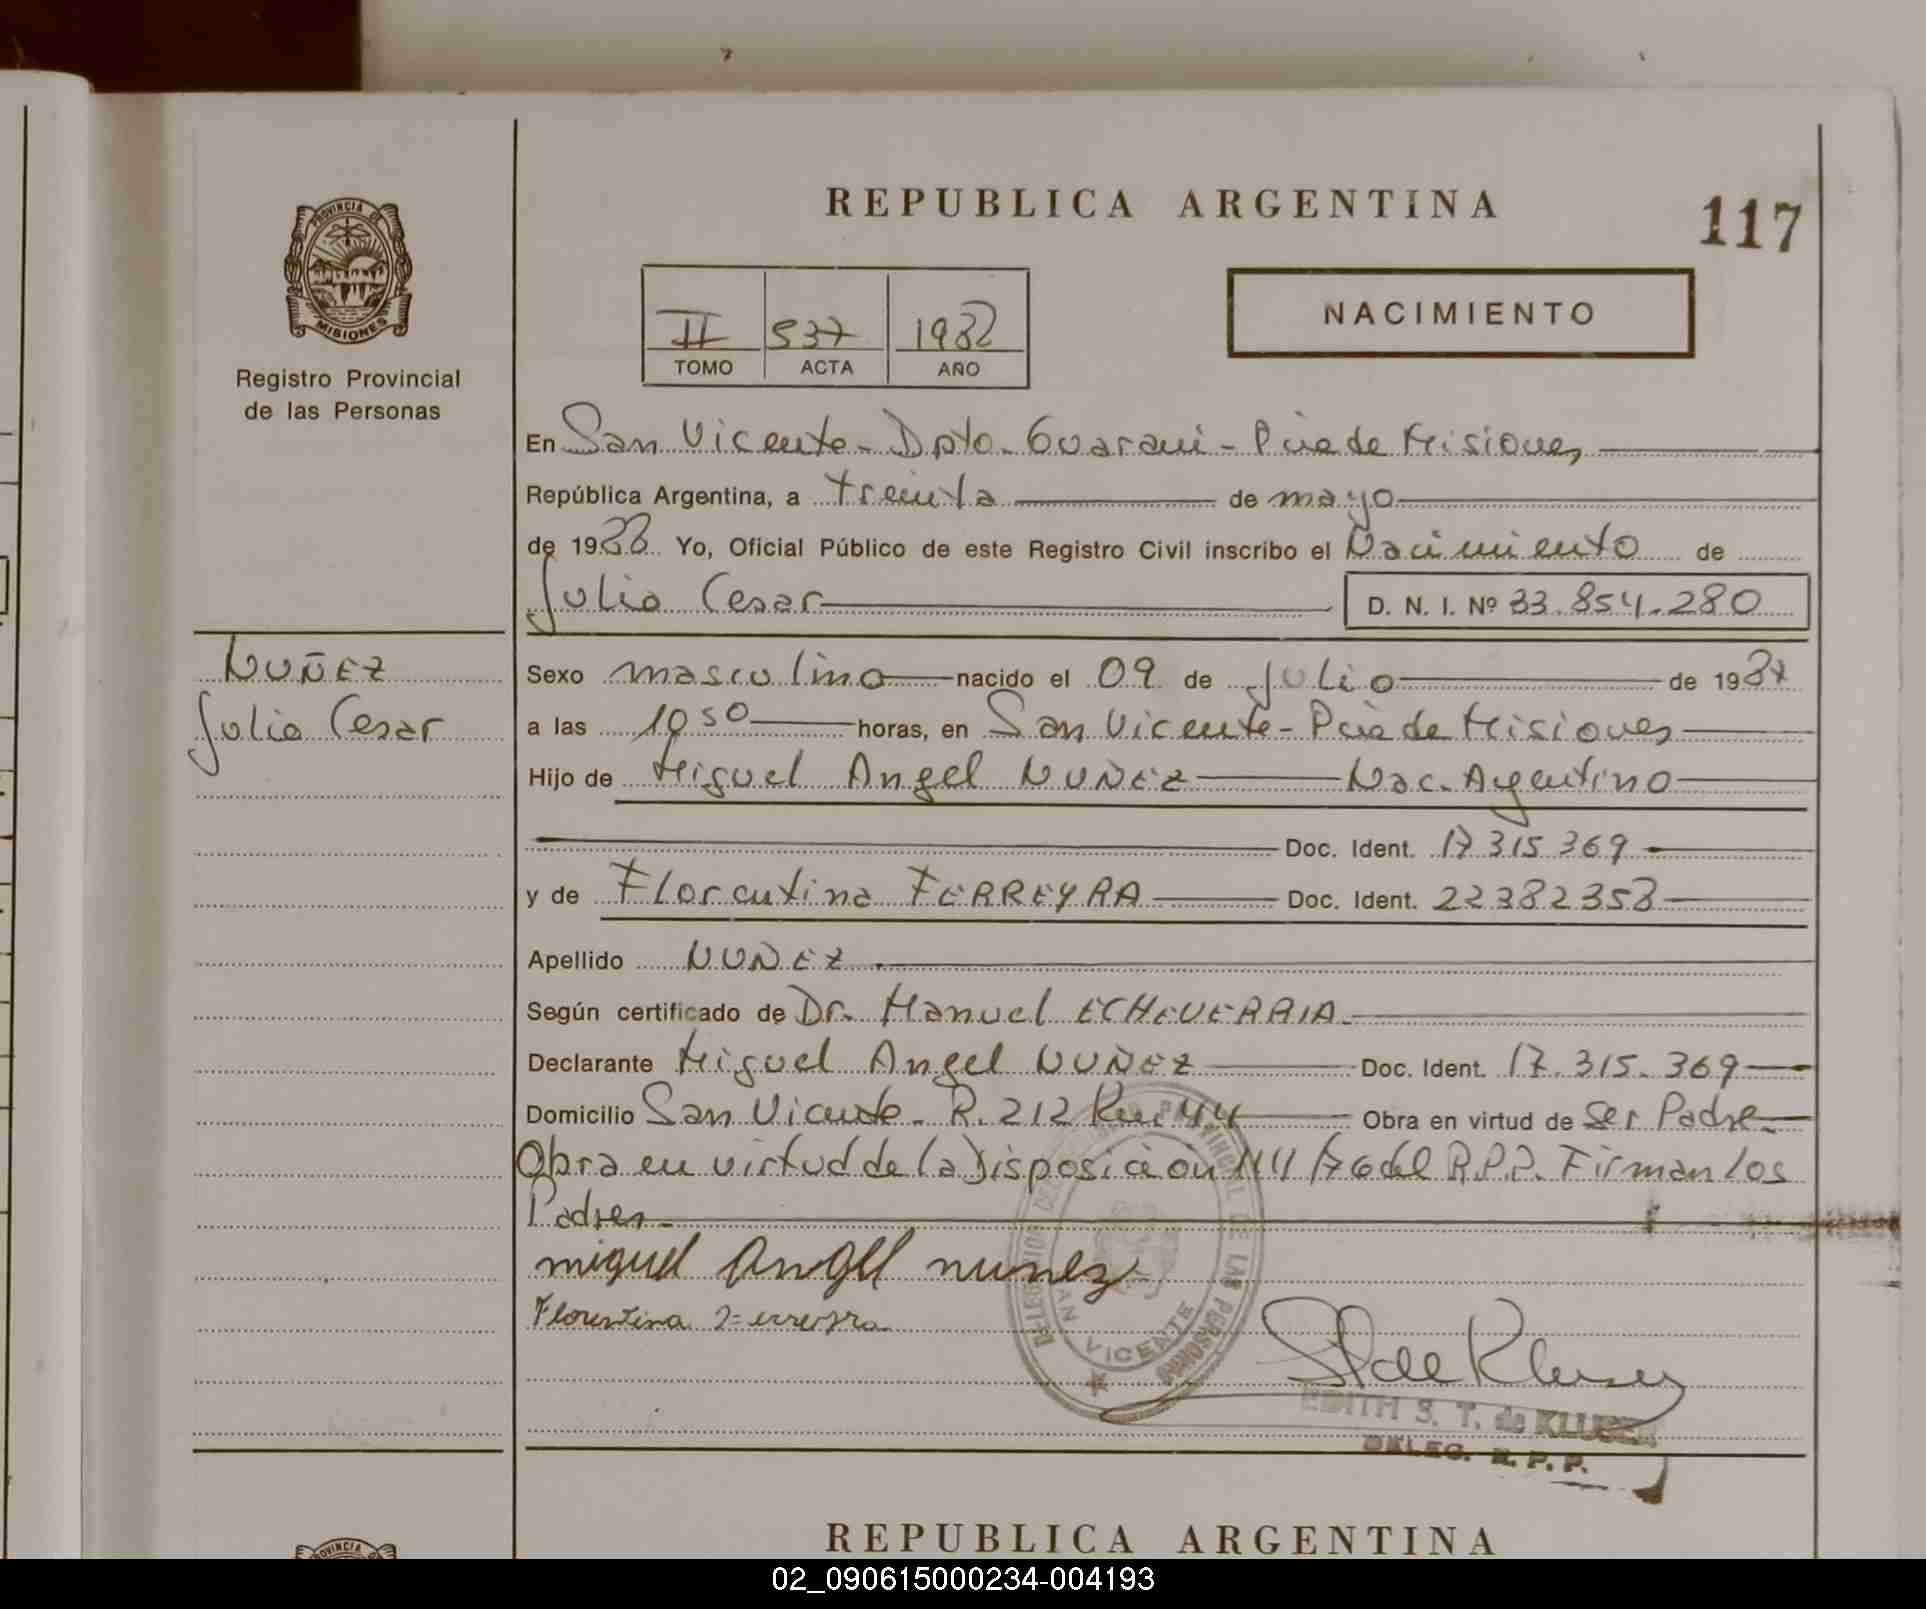 REPUBLICA ARGENTINA
117
PROVINCIA DE
MISIONES
Registro Provincial
de las Personas
II 537 1988
TOMO ACTA AÑO
NACIMIENTO
En San Vicente - Dpto. Guarani - Pcia de Misiones
República Argentina, a treinta de mayo
de 1988 Yo, Oficial Público de este Registro Civil inscribo el Nacimiento de
Julio Cesar D. N. I. Nº 33.854.280
NUÑEZ
Julio Cesar
Sexo masculino nacido el 09 de Julio de 1987
a las 10 50 horas, en San Vicente - Pcia de Misiones
Hijo de Miguel Angel NUÑEZ Nac. Argentino
Doc. Ident. 17 315 369
y de Florentina FERREYRA Doc. Ident. 22382358
Apellido NUÑEZ
Según certificado de Dr. Manuel ECHEVERRIA
Declarante Miguel Angel NUÑEZ Doc. Ident. 17.315.369
Domicilio San Vicente - R. 212 Km 44 Obra en virtud de Ser Padre
Obra en virtud de la Disposición 114/76 del R.P.P. Firman los
Padres
miguel Angel nuñez
Florentina Ferreyra
DELEGACION DEL PROVINCIAL DE LAS PERSONAS
SAN VICENTE
EDITH S. T. de KLUSER
DELEG. R. P. P.
REPUBLICA ARGENTINA
PROVINCIA DE
02_090615000234-004193